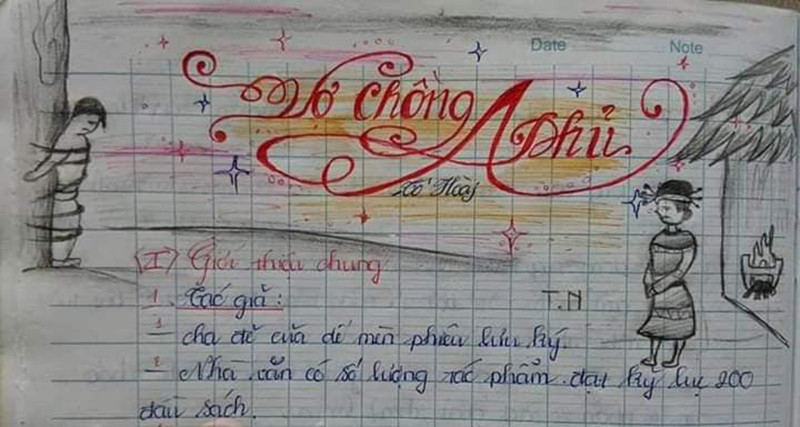 Date Note
Vợ chồng A Phủ
Tô Hoài
(I) Giới thiệu chung
1. Tác giả:
T.N
- cha đẻ của dế mèn phiêu lưu ký.
- Nhà văn có số lượng tác phẩm đạt kỷ lục 200
đầu sách.